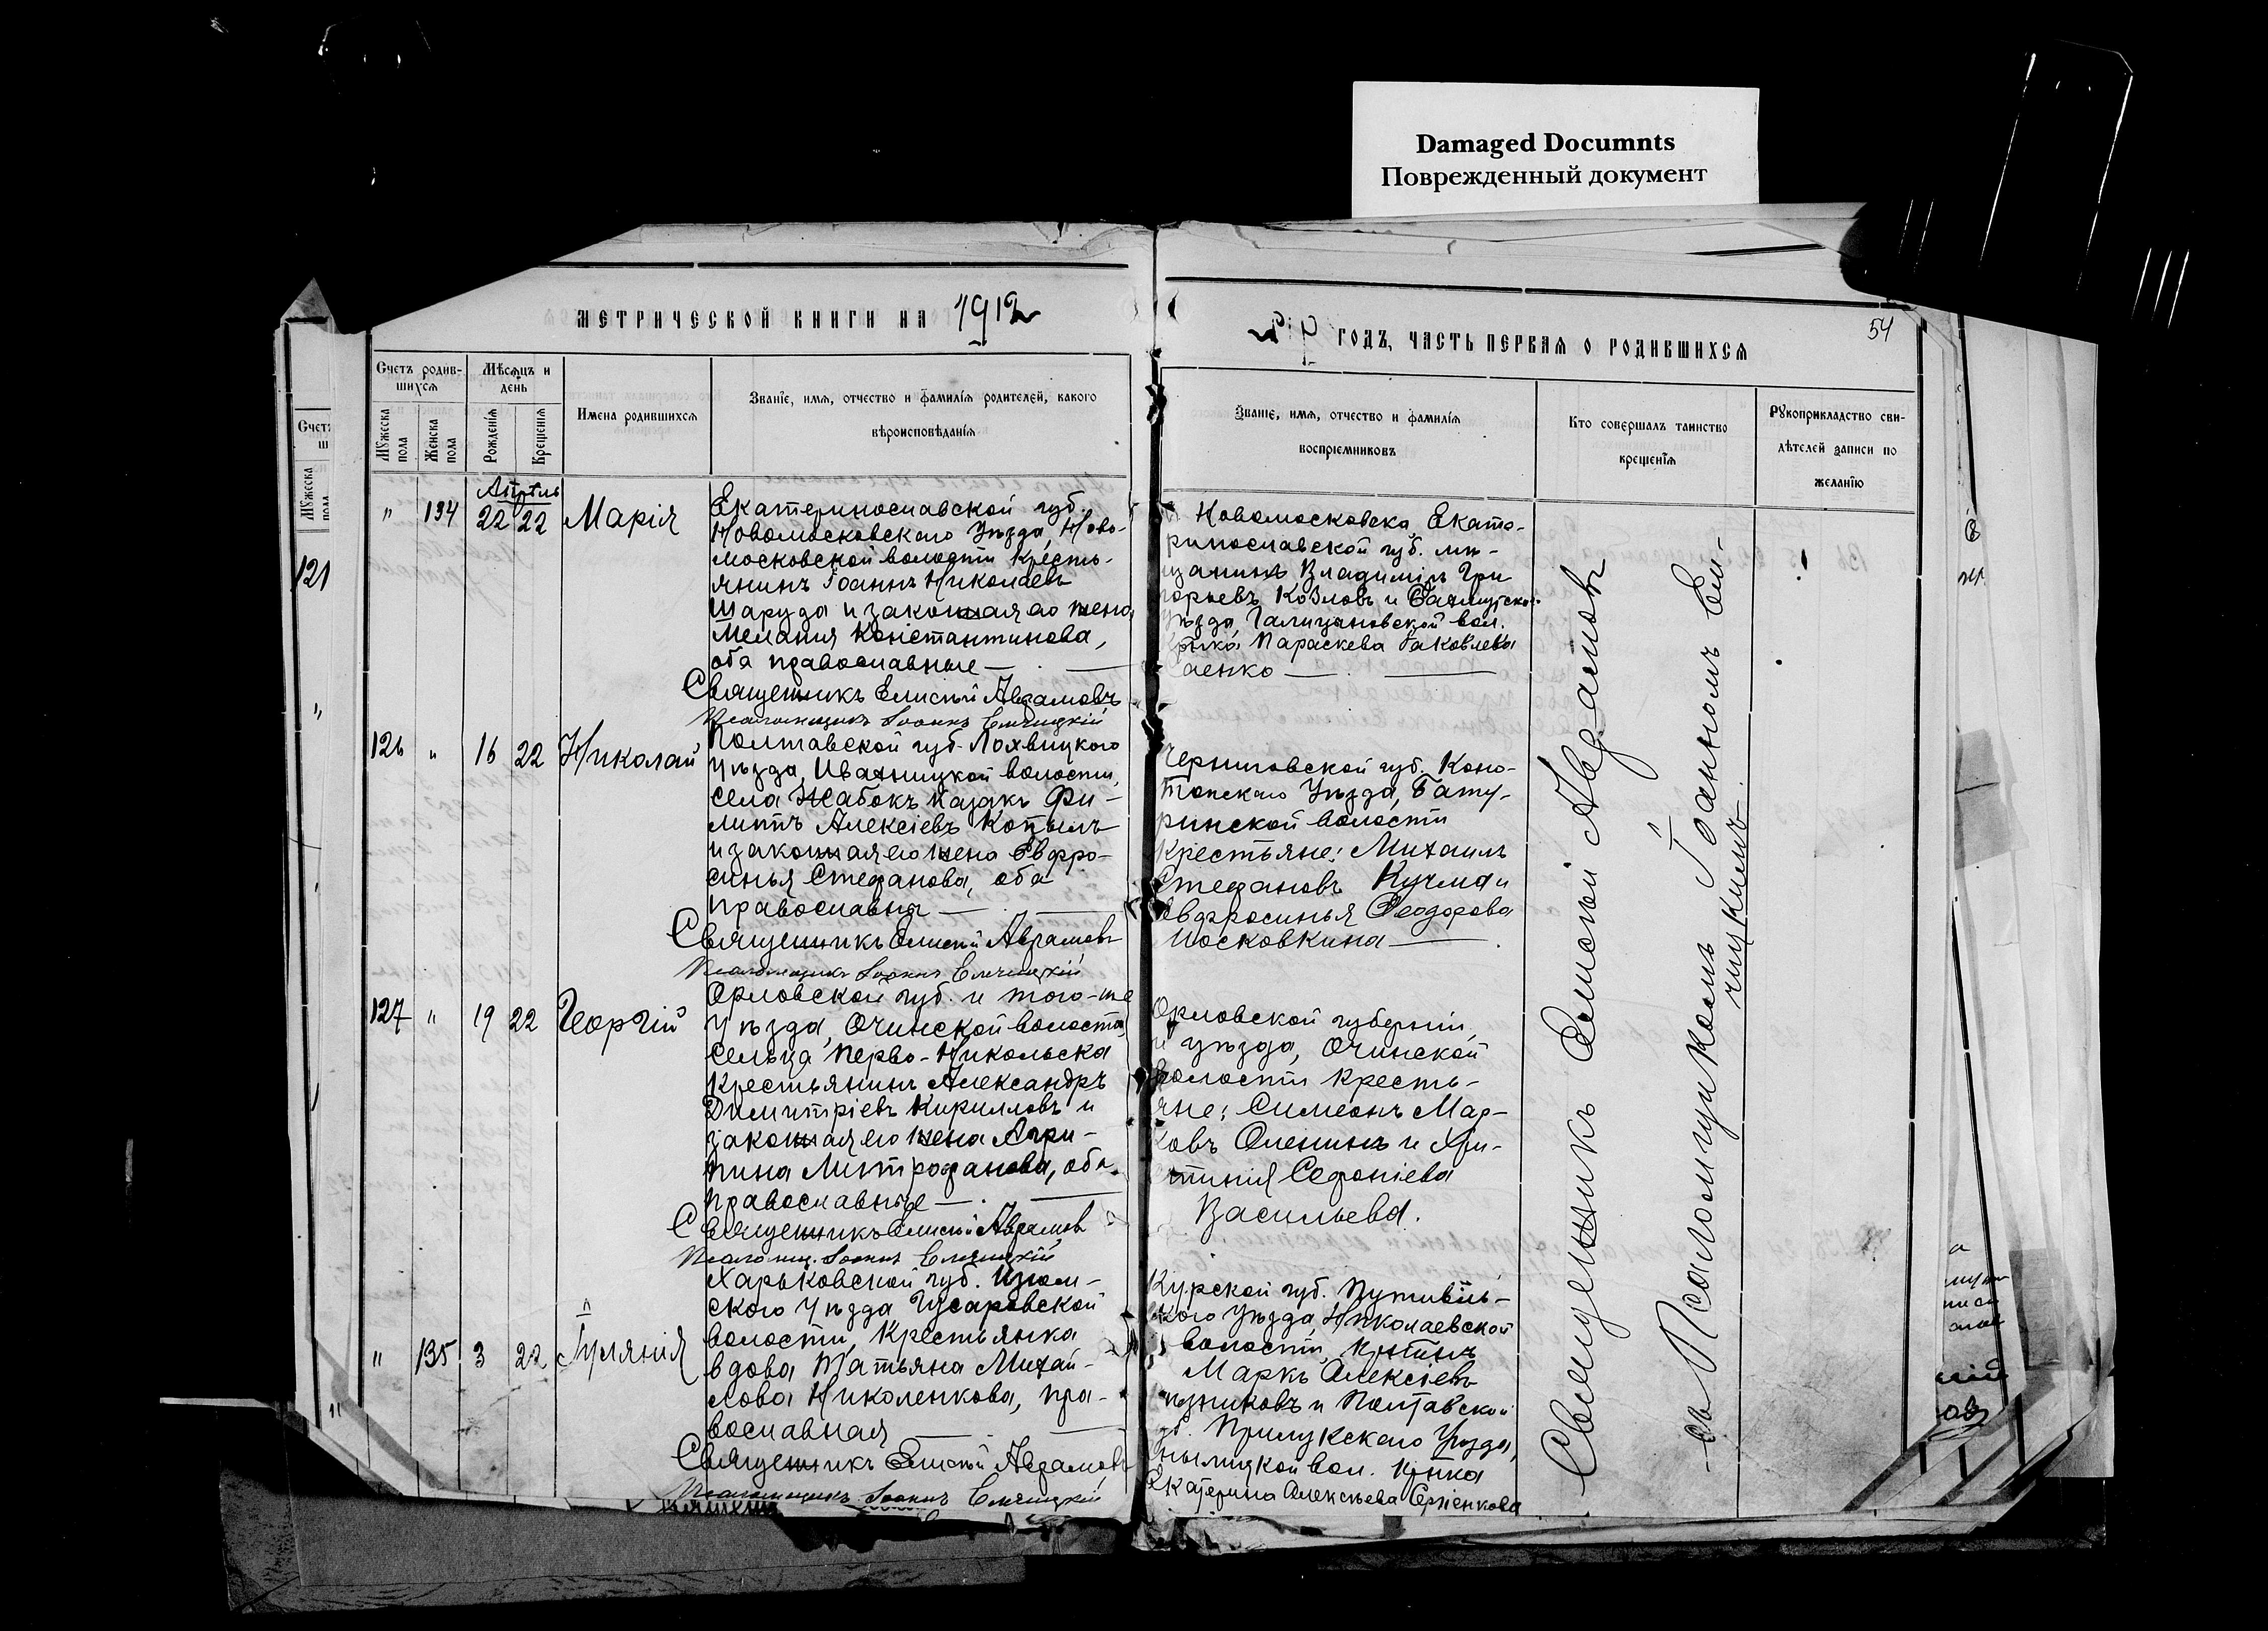 Damaged Documnts
Поврежденный документ
МЕТРИЧЕСКОЙ КНИГИ НА 1912
ГОДЪ, ЧАСТЬ ПЕРВАЯ О РОДИВШИХСЯ
54
Счетъ родив-
шихся
Мужеска пола
Женска пола
Мѣсяцъ и
день
Рожденія
Крещенія
Имена родившихся
Званіе, имя, отчество и фамилія родителей, какого
вѣроисповѣданія
Званіе, имя, отчество и фамилія
воспріемниковъ
Кто совершалъ таинство
крещенія
Рукоприкладство сви-
дѣтелей записи по
желанію
Апрѣль
" 134 22 22 Марія
Екатеринославской губ.
Новомосковскаго Уѣзда, Ново-
московской волости Кресть-
янинъ Іоаннъ Николаевъ
Шаруда и законная его жена
Меланія Константинова,
оба православные
Священникъ Елисѣй Авраамовъ
Псаломщикъ Іоаннъ
Новомосковска, Екате-
ринославской губ. мѣ-
щанинъ Владиміръ Гри
горьевъ Козловъ и Бахмутско
уѣзда, Галицановской вол.
Параскева Іаковлева
аенко
126 " 16 22 Николай
Полтавской губ. Лохвицкого
Уѣзда, Ивахницкой волости,
села Жабокъ казакъ Фи-
липпъ Алексіевъ Копыль
и законная его жена Евфро-
синья Стефанова, оба
православны
Священникъ Елисѣй Авраамовъ
Псаломщикъ Іоаннъ
Черниговской губ. Коно-
топскаго Уѣзда, Бату-
ринской волости
Крестьяне: Михаилъ
Стефановъ Кучма и
Евфросинья Феодорова
Московкина
127 " 19 22 Георгій
Орловской губ. и того-же
Уѣзда, Очинской волости
сельца Перво-Никольска
Крестьянинъ Александръ
Димитріевъ Кирилловъ и
законная его жена Агри-
пина Митрофанова, оба
православные
Священникъ Елисѣй Авраамовъ
Псаломщ. Іоаннъ
Орловской губерніи
и уѣзда, Очинской
волости Кресть-
яне: Симеонъ Мар-
ковъ Оленинъ и Хри-
стинія Софоніева
Васильева.
" 135 3 22 Іуліанія
Харьковской губ. Изюм-
ского Уѣзда Гусаровской
волости, Крестьянка
вдова Татьяна Михай-
лова Николенкова, пра-
вославная
Священникъ Елисѣй Авраамовъ
Псаломщикъ Іоаннъ
Курской губ. Путивль-
кого Уѣзда Николаевской
волости,
Маркъ Алексіевъ
и Полтавской
Прилукскаго Уѣзда,
вол.
Екатерина Алексѣева Сергіенкова
Священникъ Елисѣй Авраамовъ
съ Псаломщикомъ Іоанномъ
121